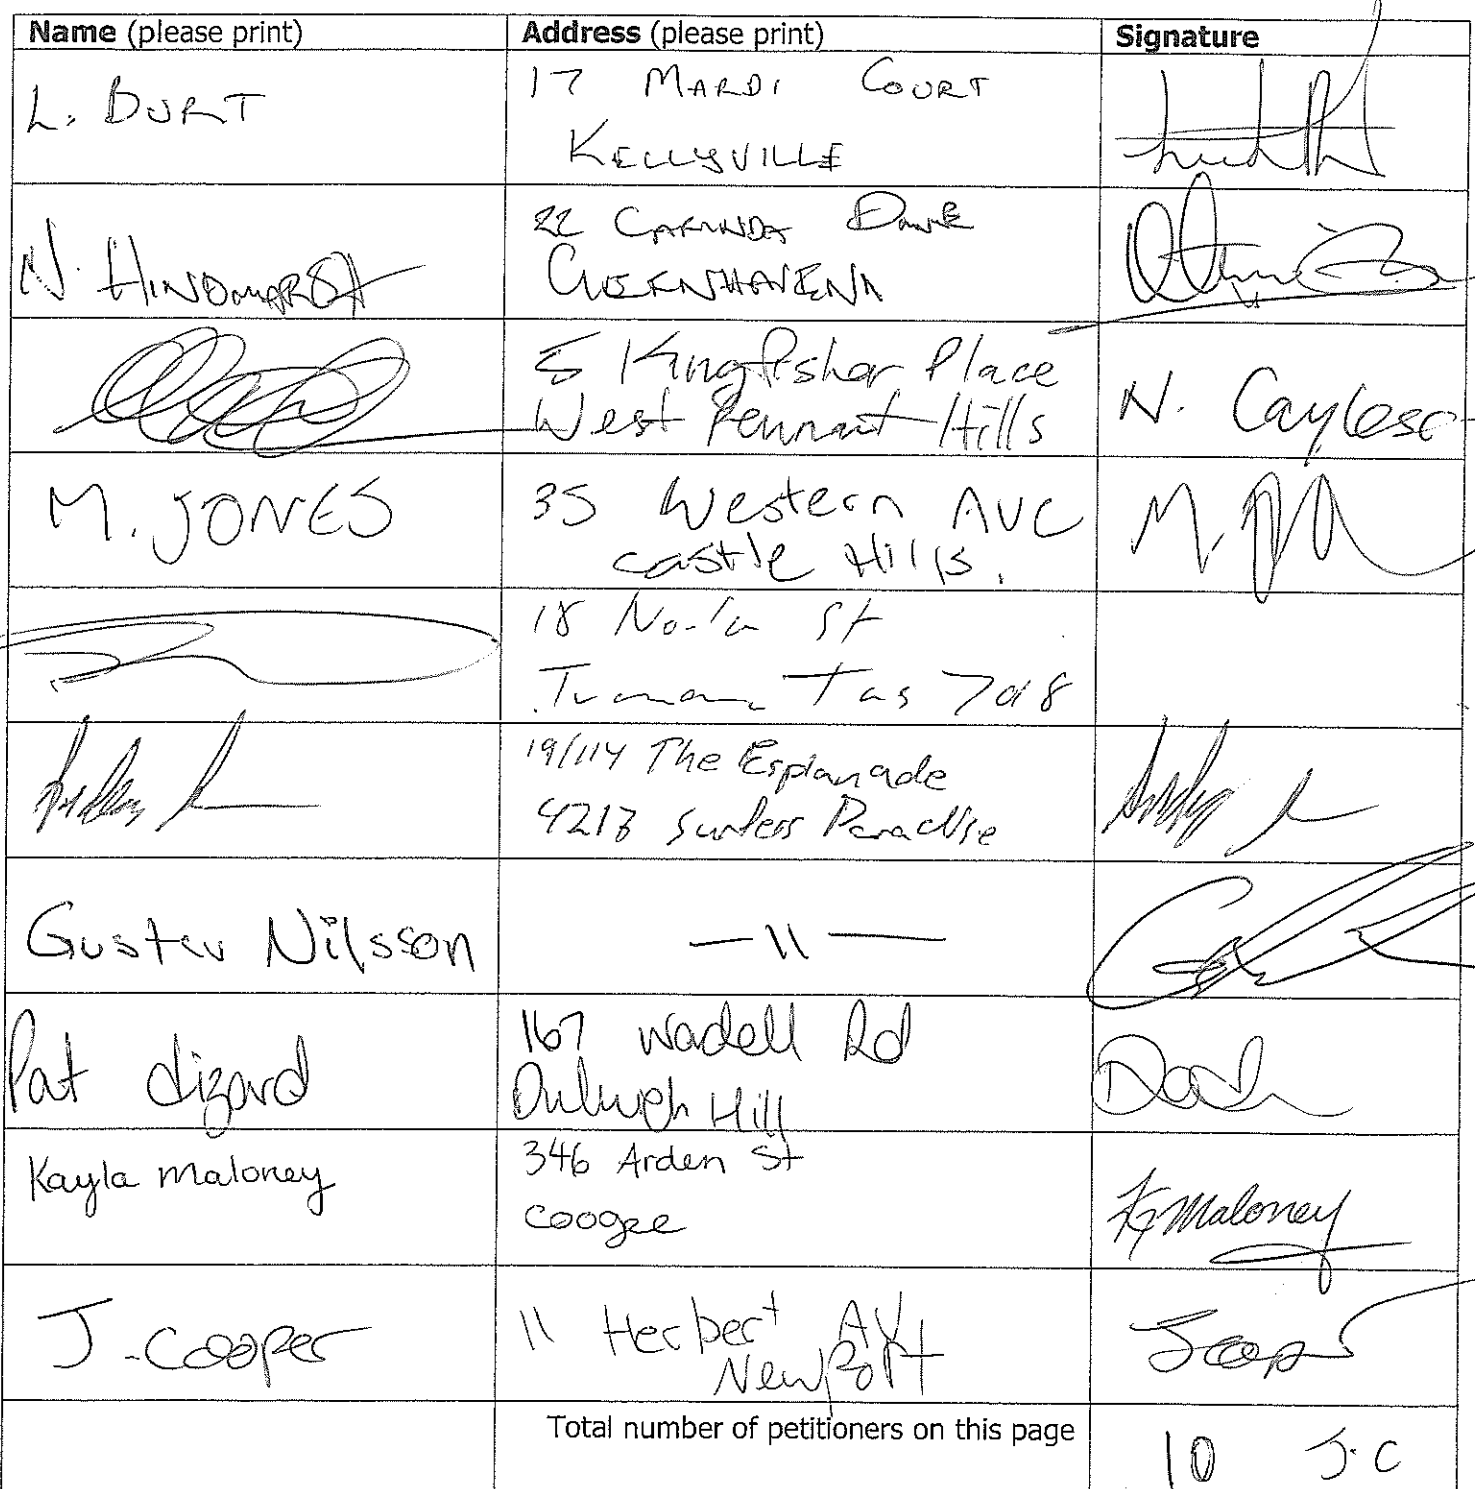 Name (please print) Address (please print) Signature
L. BURT 17 MARDI COURT
KELLYVILLE
N. HINDMARSH 22 DRIVE
5 Kingfisher Place
West Pennant Hills N. Cayless
M. JONES 35 Western AVE M.
castle Hills.
18 St
Tas 7018
19/114 The Esplanade
4217 Surfers Paradise
Gustav Nilsson —11—
Pat dizard 167 Wadell Rd
Dulwich Hill
Kayla Maloney 346 Arden St
Coogee K Maloney
J. Cooper 11 Herbert AV
Newport JCooper
Total number of petitioners on this page
10 J.C